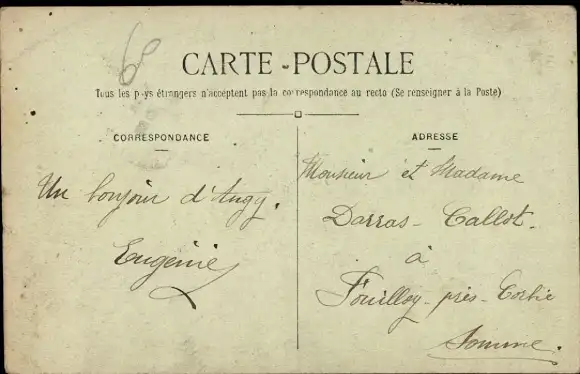 60
CARTE-POSTALE
Tous les pays étrangers n'acceptent pas la correspondance au recto (Se renseigner à la Poste)
CORRESPONDANCE
Un bonjour d'Angy.
Eugénie
ADRESSE
Monsieur et Madame
Darras-Callot.
à
Fouilloy-près-Corbie
Somme.